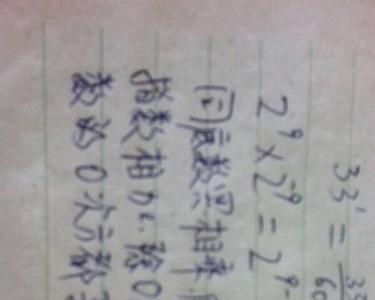 33' = 3
2⁹ × 2⁻⁹ = 2⁹⁻
同底数幂相乘
指数相加. 除0
数的0次方都